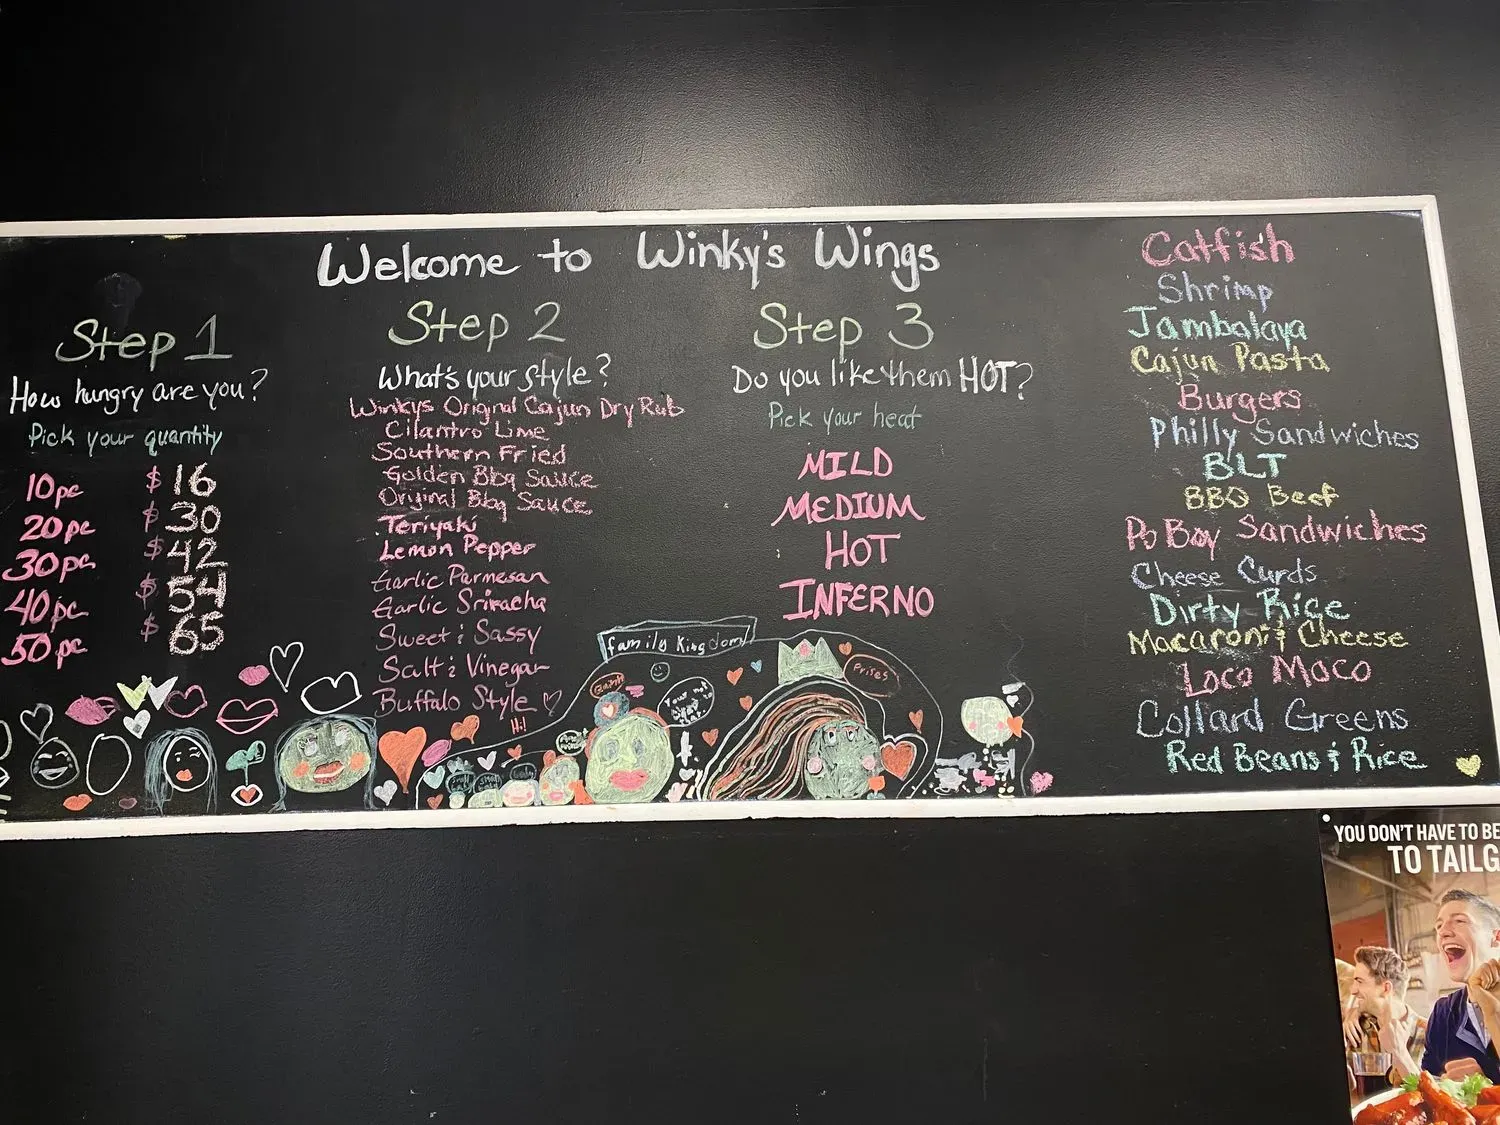 Welcome to Winky's Wings
Step 1
How hungry are you?
Pick your quantity
10pc $16
20pc $30
30pc $42
40pc $54
50pc $65
Step 2
What's your style?
Winkys Original Cajun Dry Rub
Cilantro Lime
Southern Fried
Golden Bbq Sauce
Original Bbq Sauce
Teriyaki
Lemon Pepper
Garlic Parmesan
Garlic Sriracha
Sweet & Sassy
Salt & Vinegar
Buffalo Style
Step 3
Do you like them HOT?
Pick your heat
MILD
MEDIUM
HOT
INFERNO
family Kingdom
Hi!
Catfish
Shrimp
Jambalaya
Cajun Pasta
Burgers
Philly Sandwiches
BLT
BBQ Beef
Po Boy Sandwiches
Cheese Curds
Dirty Rice
Macaroni & Cheese
Loco Moco
Collard Greens
Red Beans & Rice
YOU DON'T HAVE TO BE
TO TAILG